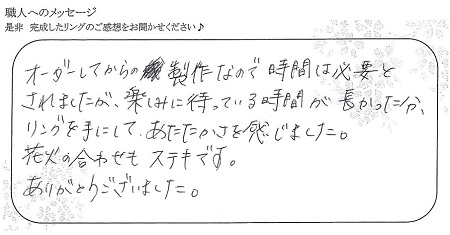 職人へのメッセージ
是非 完成したリングのご感想をお聞かせください♪
オーダーしてからの製作なので時間は必要と
されましたが、楽しみに待っている時間が長かった分、
リングを手にして、あたたかさを感じました。
花火の合わせもステキです。
ありがとうございました。